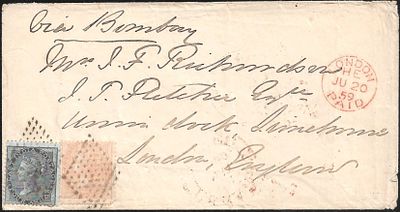 Via Bombay
Mrs J. F. Richardson
J. T. Fletcher Esqre
Union Dock Limehouse
London, England
LONDON
HE
JU 20
59
PAID